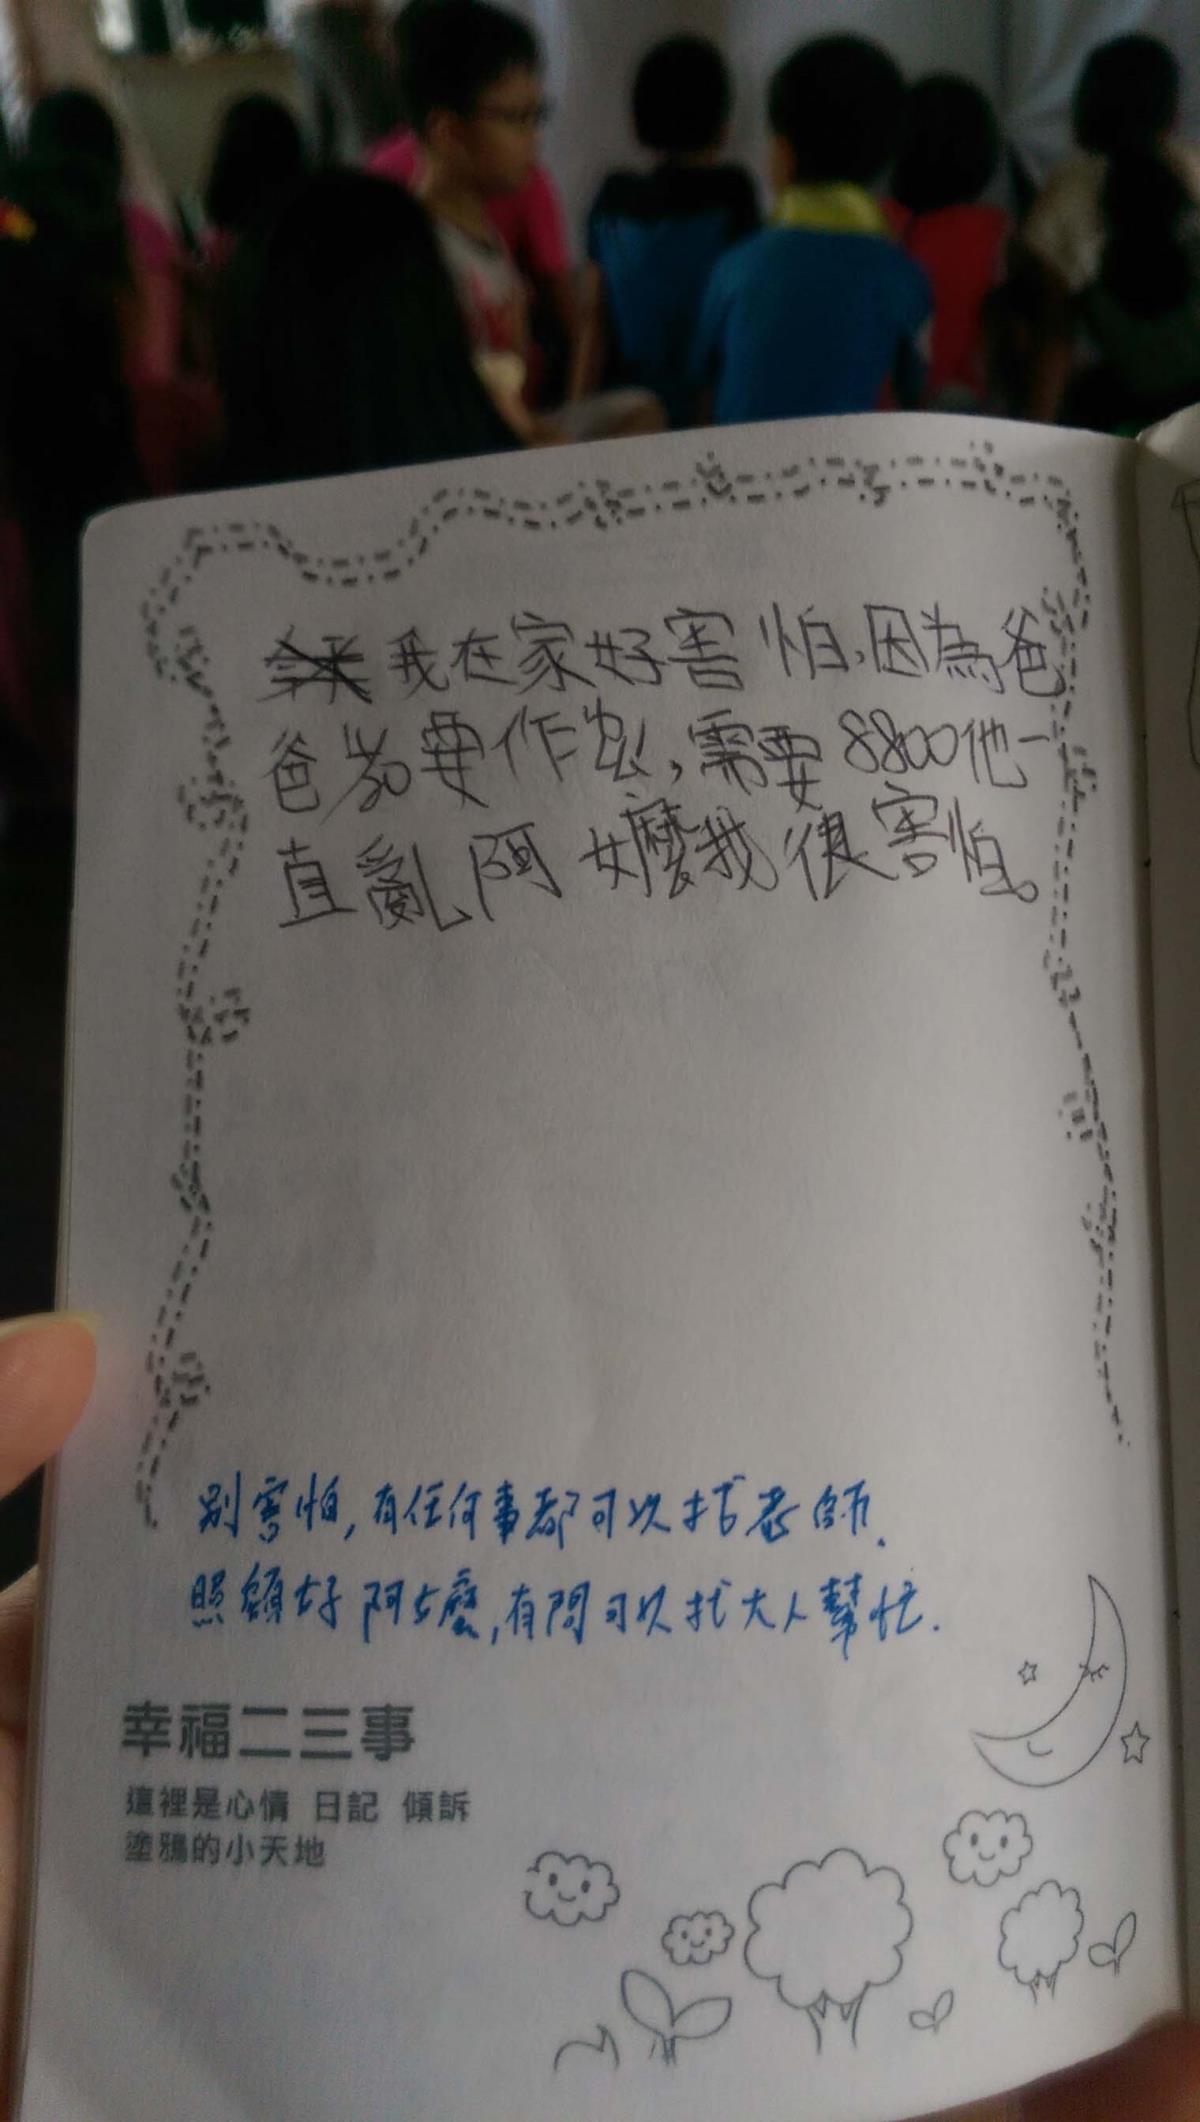 我在家好害怕,因為爸
爸說要作法,需要8800他一
直亂阿嬤我很害怕。
別害怕,有任何事都可以找老師.
照顧好阿嬤,有問可以找大人幫忙.
幸福二三事
這裡是心情 日記 傾訴
塗鴉的小天地